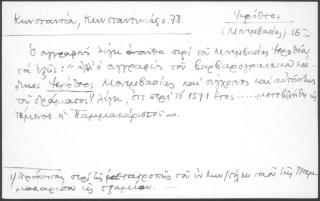 Κωνσταντία, Κωνσταντινιάς σ. 78
Ἱερόθεος
(Μονεμβασίας) 16
Ὁ συγγραφεὺς λέγει ἐνταῦθα περὶ τοῦ Μονεμβασίας Ἱεροθέου
τὰ ἑξῆς: "ἀλλ' ὁ συγγραφεὺς τοῦ βαρβαρογραικικοῦ κώ-
δικος Ἱερόθεος Μονεμβασίας καὶ σύγχρονος καὶ αὐτόπτης
τοῦ δράματος" λέγει, ὅτι περὶ τὸ 1591 ἔτος ..... μετεβλήθη εἰς
τέμενος ἡ Παμμακάριστος...
1) Πρόκειται περὶ τῆς μετατροπῆς τοῦ ἐν Κων/πόλει ναοῦ τῆς Παμ-
μακαρίστου εἰς τζαμίον.